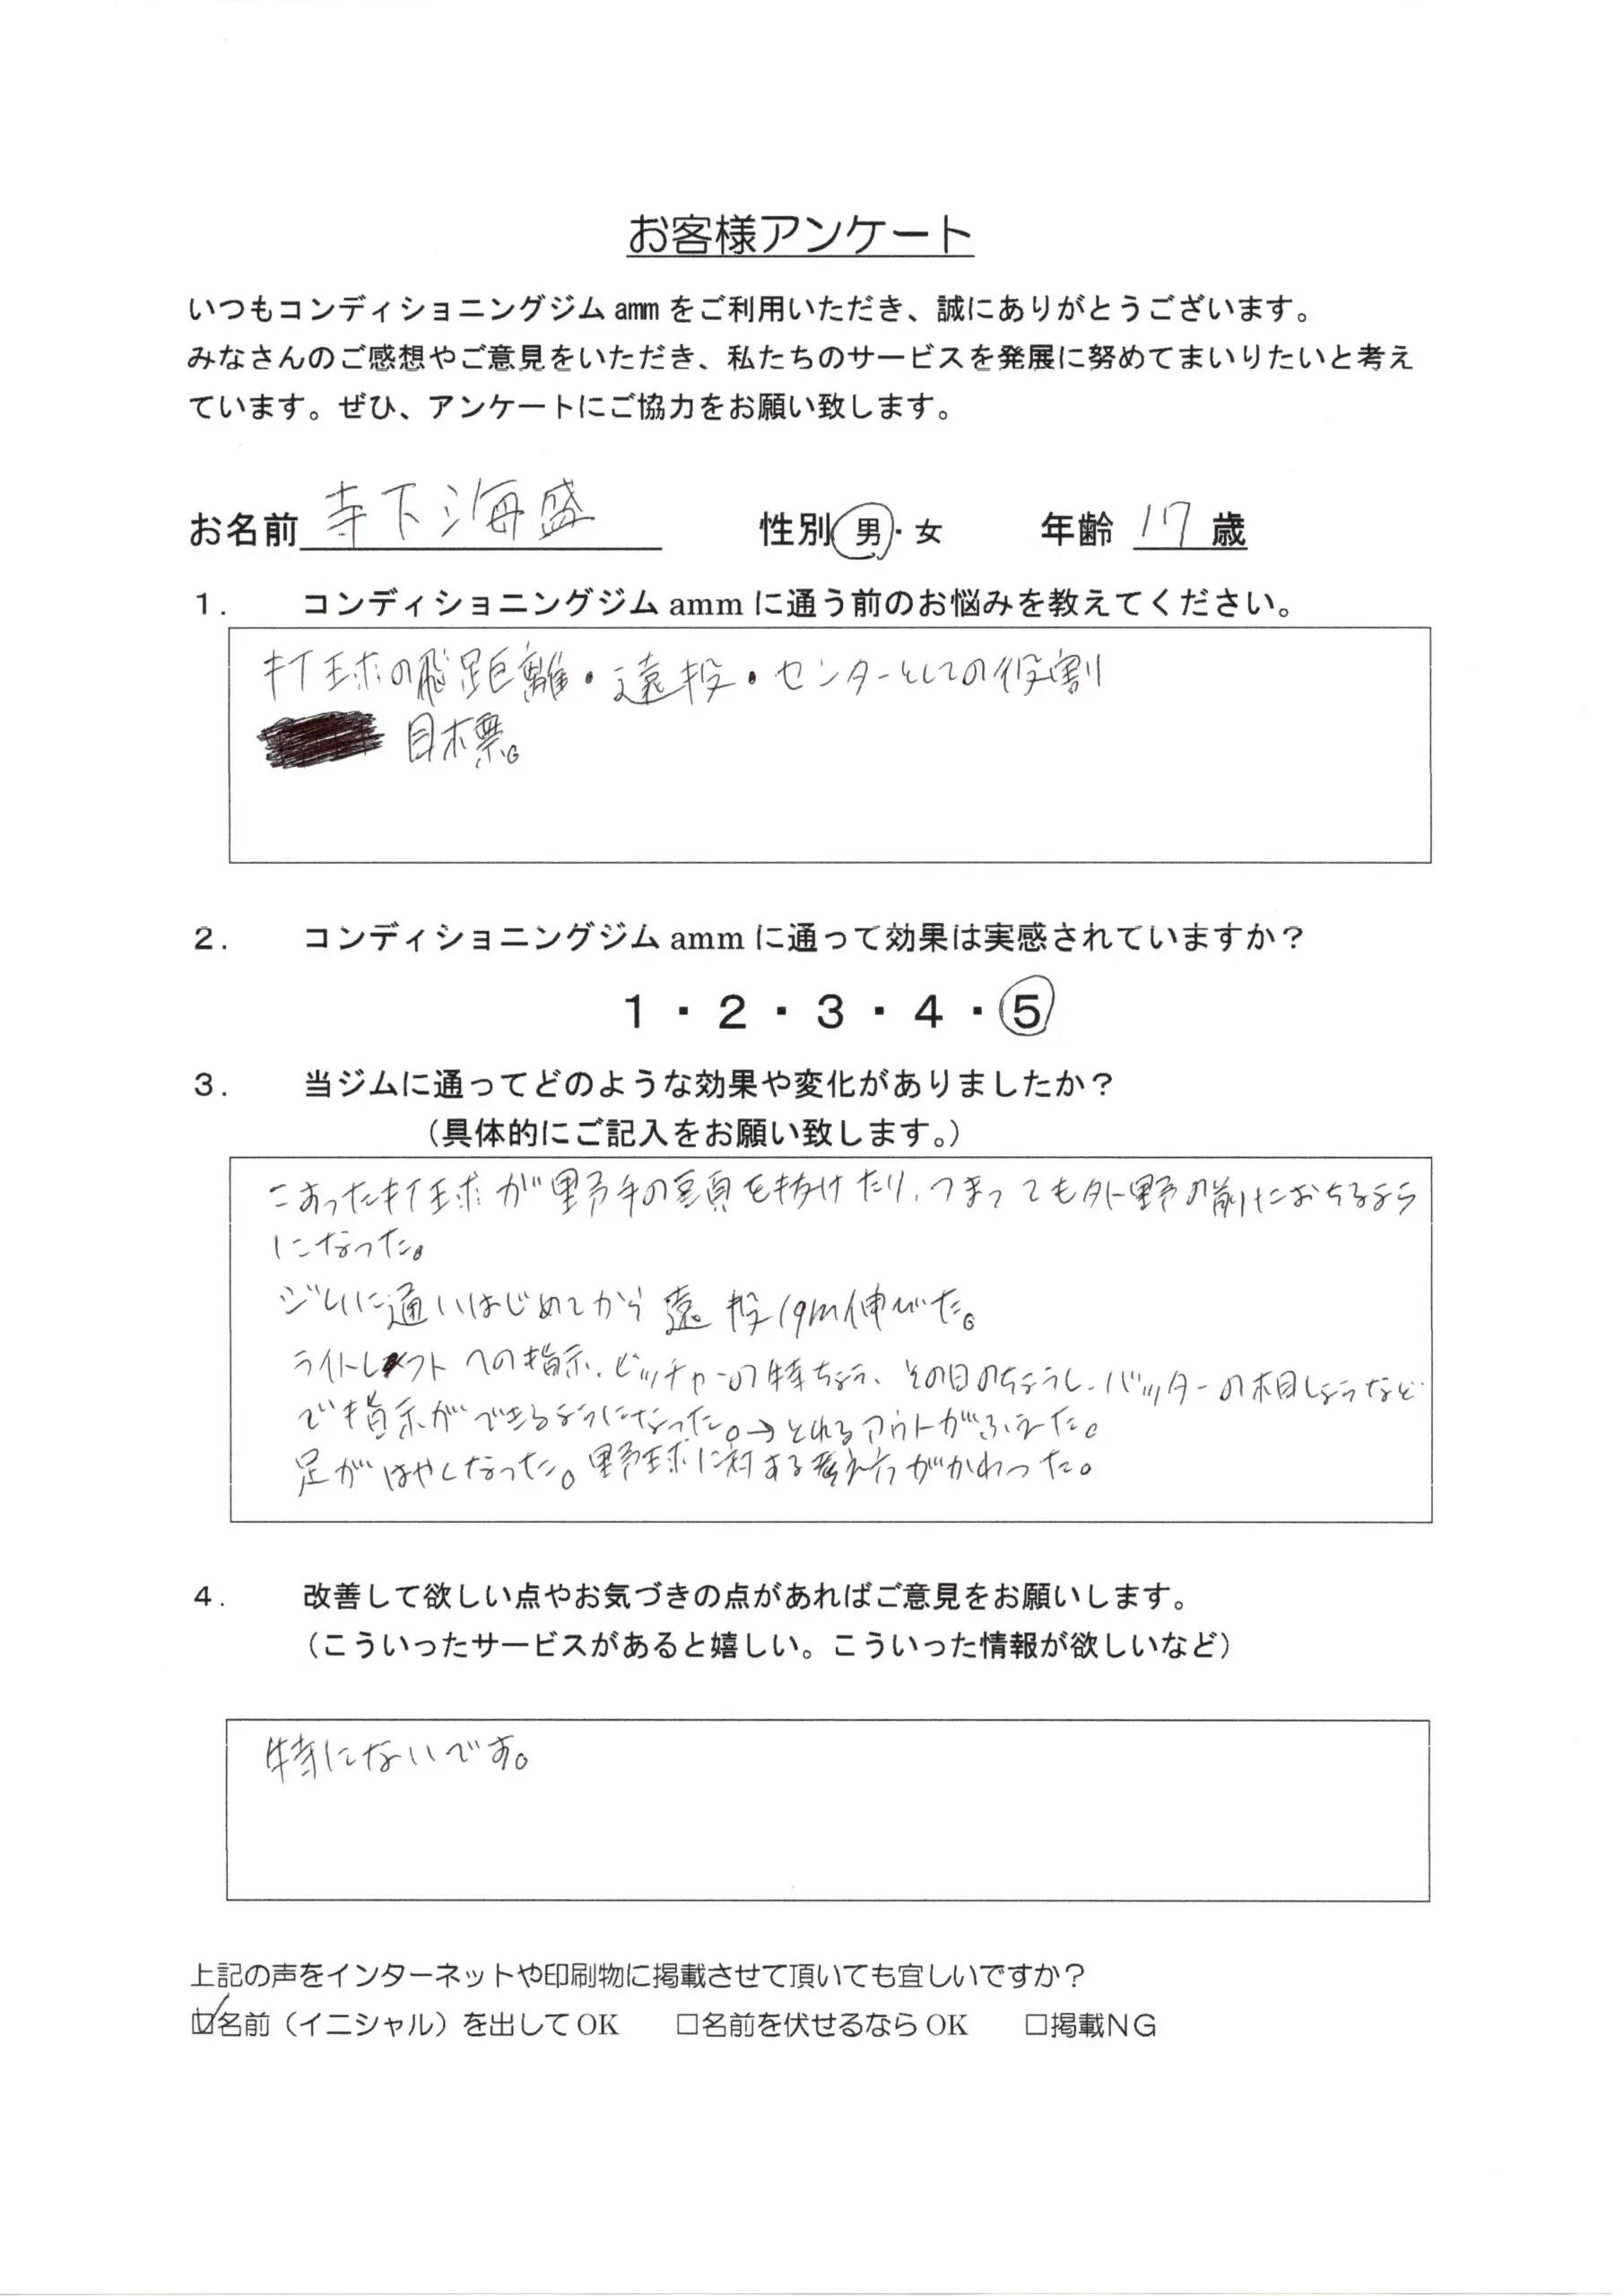 お客様アンケート
いつもコンディショニングジム amm をご利用いただき、誠にありがとうございます。
みなさんのご感想やご意見をいただき、私たちのサービスを発展に努めてまいりたいと考え
ています。ぜひ、アンケートにご協力をお願い致します。
お名前 寺下海盛 性別 男・女 年齢 17 歳
1. コンディショニングジム amm に通う前のお悩みを教えてください。
打球の飛距離・遠投・センターとしての役割
目標。
2. コンディショニングジム amm に通って効果は実感されていますか?
1・2・3・4・5
3. 当ジムに通ってどのような効果や変化がありましたか?
(具体的にご記入をお願い致します。)
こすった打球が野手の頭を抜けたり、つまっても外野の前におちるよう
になった。
ジムに通いはじめてから遠投19m伸びた。
ライトレフトへの指示、ピッチャーの特ちょう、その日のちょうし、バッターの相しょうなど
で指示ができるようになった。→とれるアウトがふえた。
足がはやくなった。野球に対する考え方がかわった。
4. 改善して欲しい点やお気づきの点があればご意見をお願いします。
(こういったサービスがあると嬉しい。こういった情報が欲しいなど)
特にないです。
上記の声をインターネットや印刷物に掲載させて頂いても宜しいですか?
☑名前(イニシャル)を出して OK □名前を伏せるなら OK □掲載NG